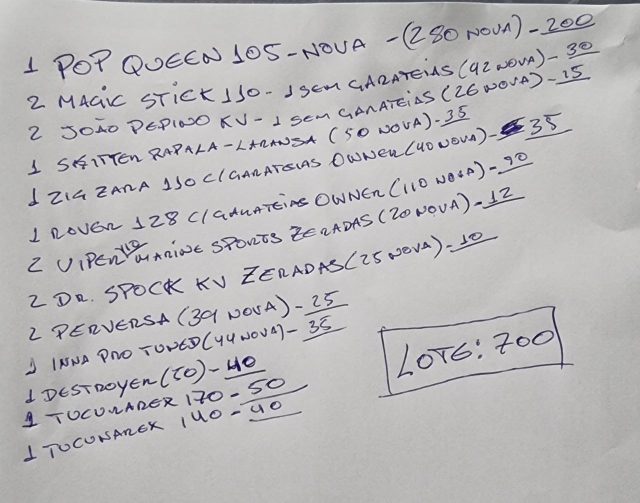 1 POP QUEEN 105 - NOVA - (280 NOVA) - 200
2 MAGIC STICK 110 - 1 SEM GARATEIAS (42 NOVA) - 30
2 JOÃO PEPINO KV - 1 SEM GARATEIAS (26 NOVA) - 15
1 SKITTER RAPALA - LARANJA (50 NOVA) - 35
1 ZIG ZARA 110 C/GARATEIAS OWNER (40 NOVA) - 35
1 ROVER 128 C/GARATEIAS OWNER (110 NOVA) - 90
2 VIPER 110 MARINE SPORTS ZERADAS (20 NOVA) - 12
2 DR. SPOCK KV ZERADAS (25 NOVA) - 10
2 PERVERSA (39 NOVA) - 25
1 INNA PRO TUNED (44 NOVA) - 35
1 DESTROYER (50) - 40
1 TUCUNARER 170 - 50
1 TUCUNAREX 140 - 40
LOTE: 700